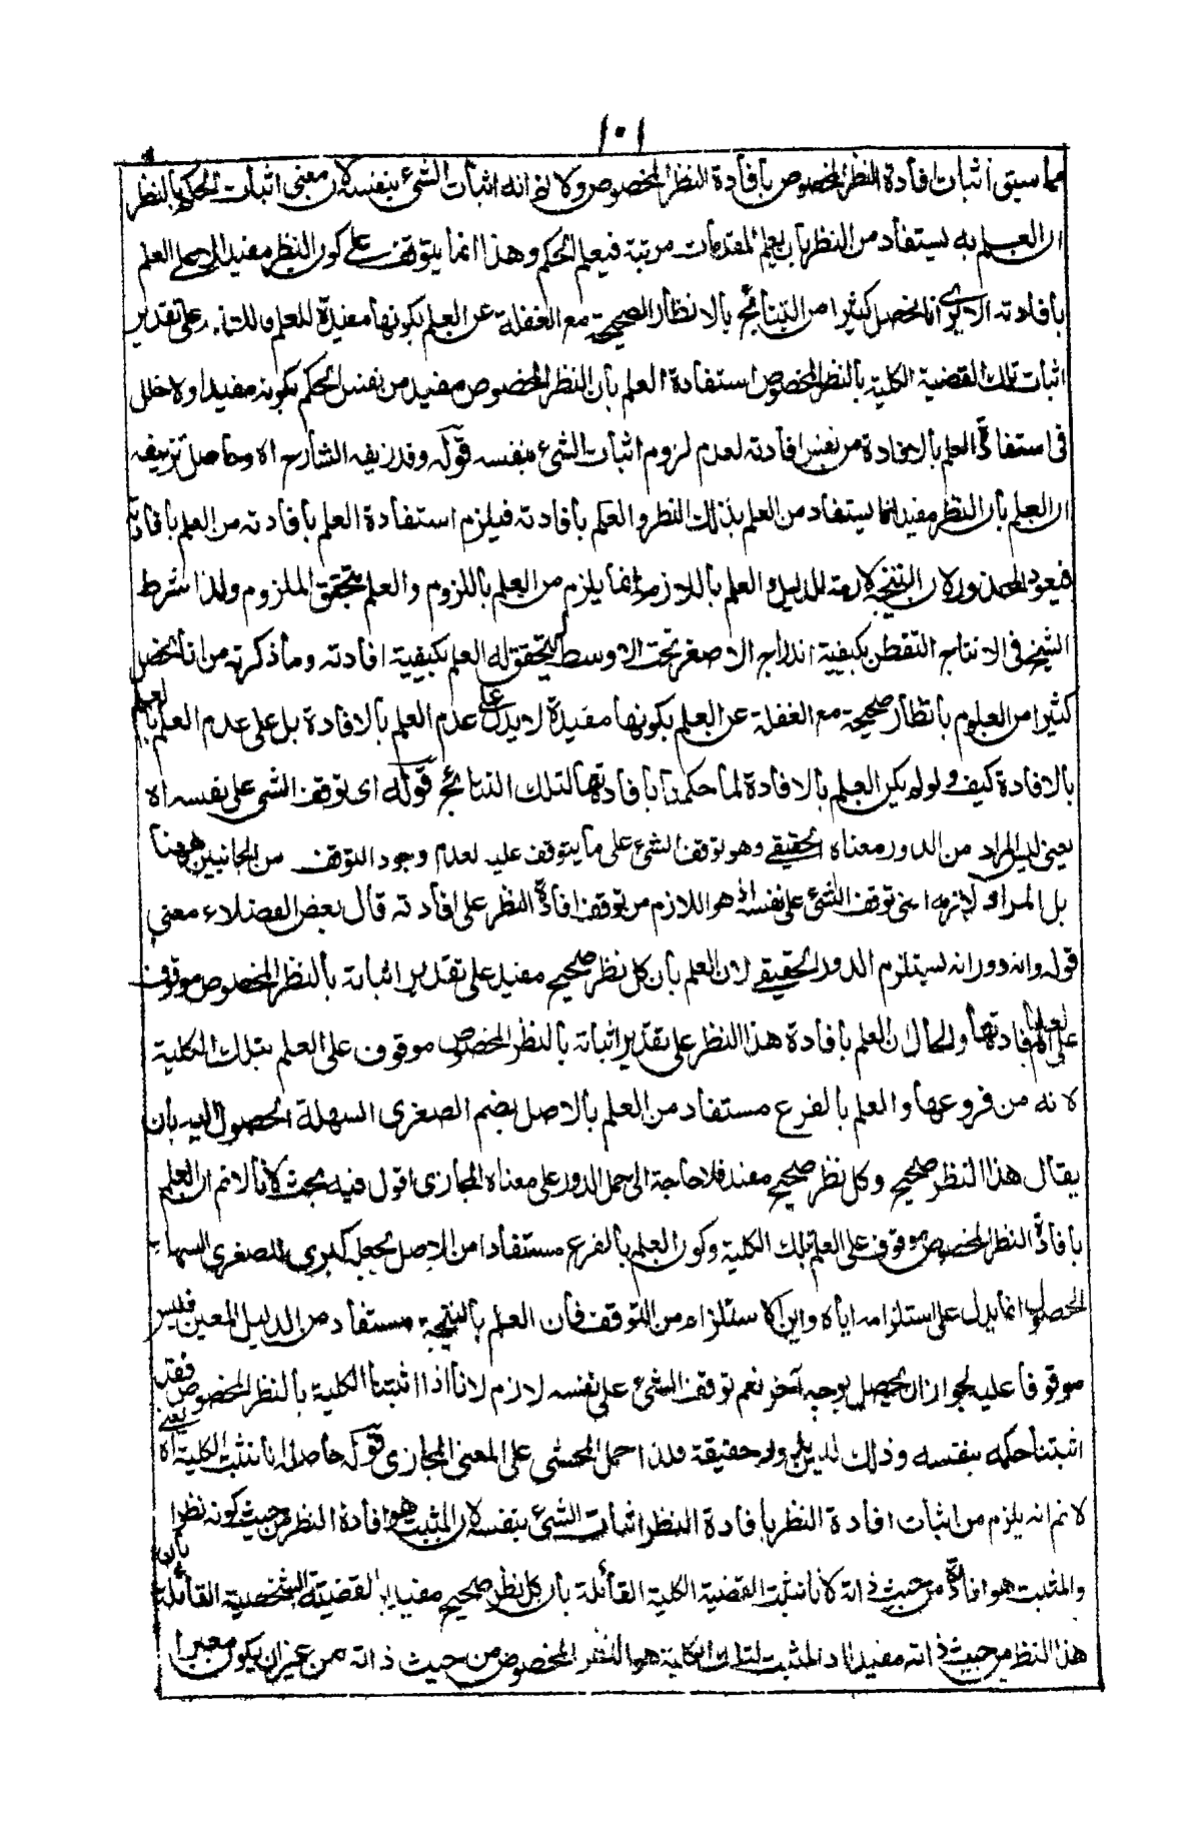 ١٠١
مما سيق اثبات افادة النظر المخصوص بافادة النظر المخصوص ولا نم انه اثبات الشئ بنفسه لان معنى اثبات الحكم بالنظر
ان العلم به يستفاد من النظر بان يعلم المقدمات مرتبة فيعلم الحكم وهذا انما يتوقف على كون النظر مفيدا لا على العلم
بافادته الا يرى انا نحصل كثيرا من النتائج بالانظار الصحيحة مع الغفلة عن العلم بكونها مفيدة للعلم على تقدير
اثبات تلك القضية الكلية بالنظر المخصوص استفادة العلم بان النظر المخصوص مفيد من نفس الحكم بكونه مفيدا ولا خلل
فى استفادة العلم بالافادة من نفس افادته لعدم لزوم اثبات الشئ بنفسه قوله وقد زيفه الشارح اه وحاصل تزييفه
ان العلم بان النظر مفيد انما يستفاد من العلم بذلك النظر والعلم بافادته فيلزم استفادة العلم بافادته من العلم بافادته
فيعود المحذور لان النتيجة لازمة للدليل والعلم باللازم انما يلزم من العلم باللزوم والعلم بتحقق الملزوم ولذا شرط
الشيخ فى الانتاج التفطن بكيفية اندراج الاصغر تحت الاوسط ليتحقق له العلم بكيفية افادته وما ذكرته من انا نحصل
كثيرا من العلوم بانظار صحيحة مع الغفلة عن العلم بكونها مفيدة لا يدل على عدم العلم بالافادة بل على عدم العلم بالعلم
بالافادة كيف ولو لم يكن العلم بالافادة لما حكمنا بافادتها لتلك النتائج قوله اى توقف الشئ على نفسه اه
يعنى ليس المراد من الدور معناه الحقيقى وهو توقف الشئ على ما يتوقف عليه لعدم وجود التوقف من الجانبين ههنا
بل المراد لازمه اعنى توقف الشئ على نفسه اذ هو اللازم من توقف افادة النظر على افادته قال بعض الفضلاء معنى
قوله وانه دور انه يستلزم الدور الحقيقى لان العلم بان كل نظر صحيح مفيد على تقدير اثباته بالنظر المخصوص موقوف
على العلم بافادتها والحال ان العلم بافادة هذا النظر على تقدير اثباته بالنظر المخصوص موقوف على العلم بتلك الكلية
لانه من فروعها والعلم بالفرع مستفاد من العلم بالاصل بضم الصغرى السهلة الحصول اليه بان
يقال هذا النظر صحيح وكل نظر صحيح مفيد فلا حاجة الى حمل الدور على معناه المجازى اقول فيه بحث لانا لا نم ان العلم
بافادة النظر المخصوص موقوف على العلم بتلك الكلية وكون العلم بالفرع مستفادا من الاصل بجعله كبرى للصغرى السهلة
الحصول انما يدل على استلزامه اياه واين الاستلزام من التوقف فان العلم بالنتيجة مستفاد من الدليل المعين فليس
موقوفا عليه لجواز ان يحصل بوجه آخر نعم توقف الشئ على نفسه لازم لانا اذا اثبتنا الكلية بالنظر المخصوص فقد
اثبتنا حكمه بنفسه وذلك ليس بدور حقيقة فلذا حمل المحشى على المعنى المجازى قوله حاصله انا نثبت الكلية اه يعنى
لا نم انه يلزم من اثبات افادة النظر بافادة النظر اثبات الشئ بنفسه لان المثبت هو افادة النظر من حيث كونه نظرا
والمثبت هو افادته من حيث ذاته لانا نثبت القضية الكلية القائلة بان كل نظر صحيح مفيد بالقضية الشخصية القائلة بان
هذا النظر من حيث ذاته مفيد اذ المثبت لتلك الكلية هو النظر المخصوص من حيث ذاته من غير ان يكون معبرا